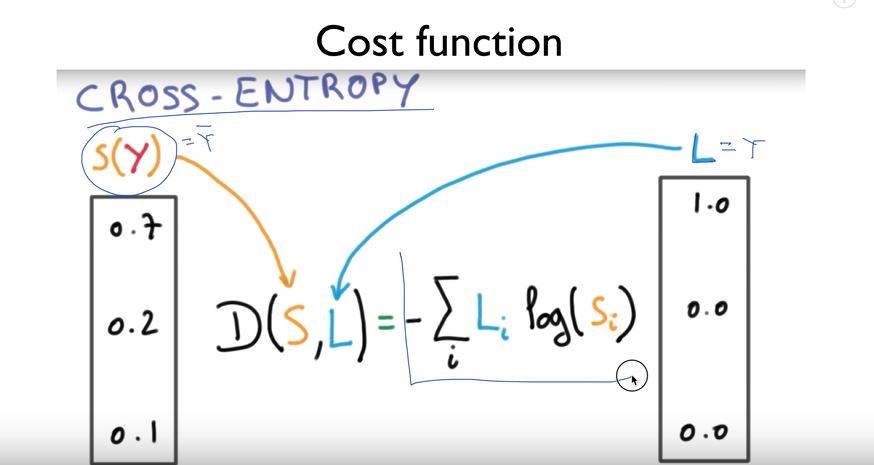 Cost function
CROSS-ENTROPY
S(Y) = Ȳ
L = Y
0.7
1.0
0.2
D(S,L) = - ∑ᵢ Lᵢ log(Sᵢ)
0.0
0.1
0.0